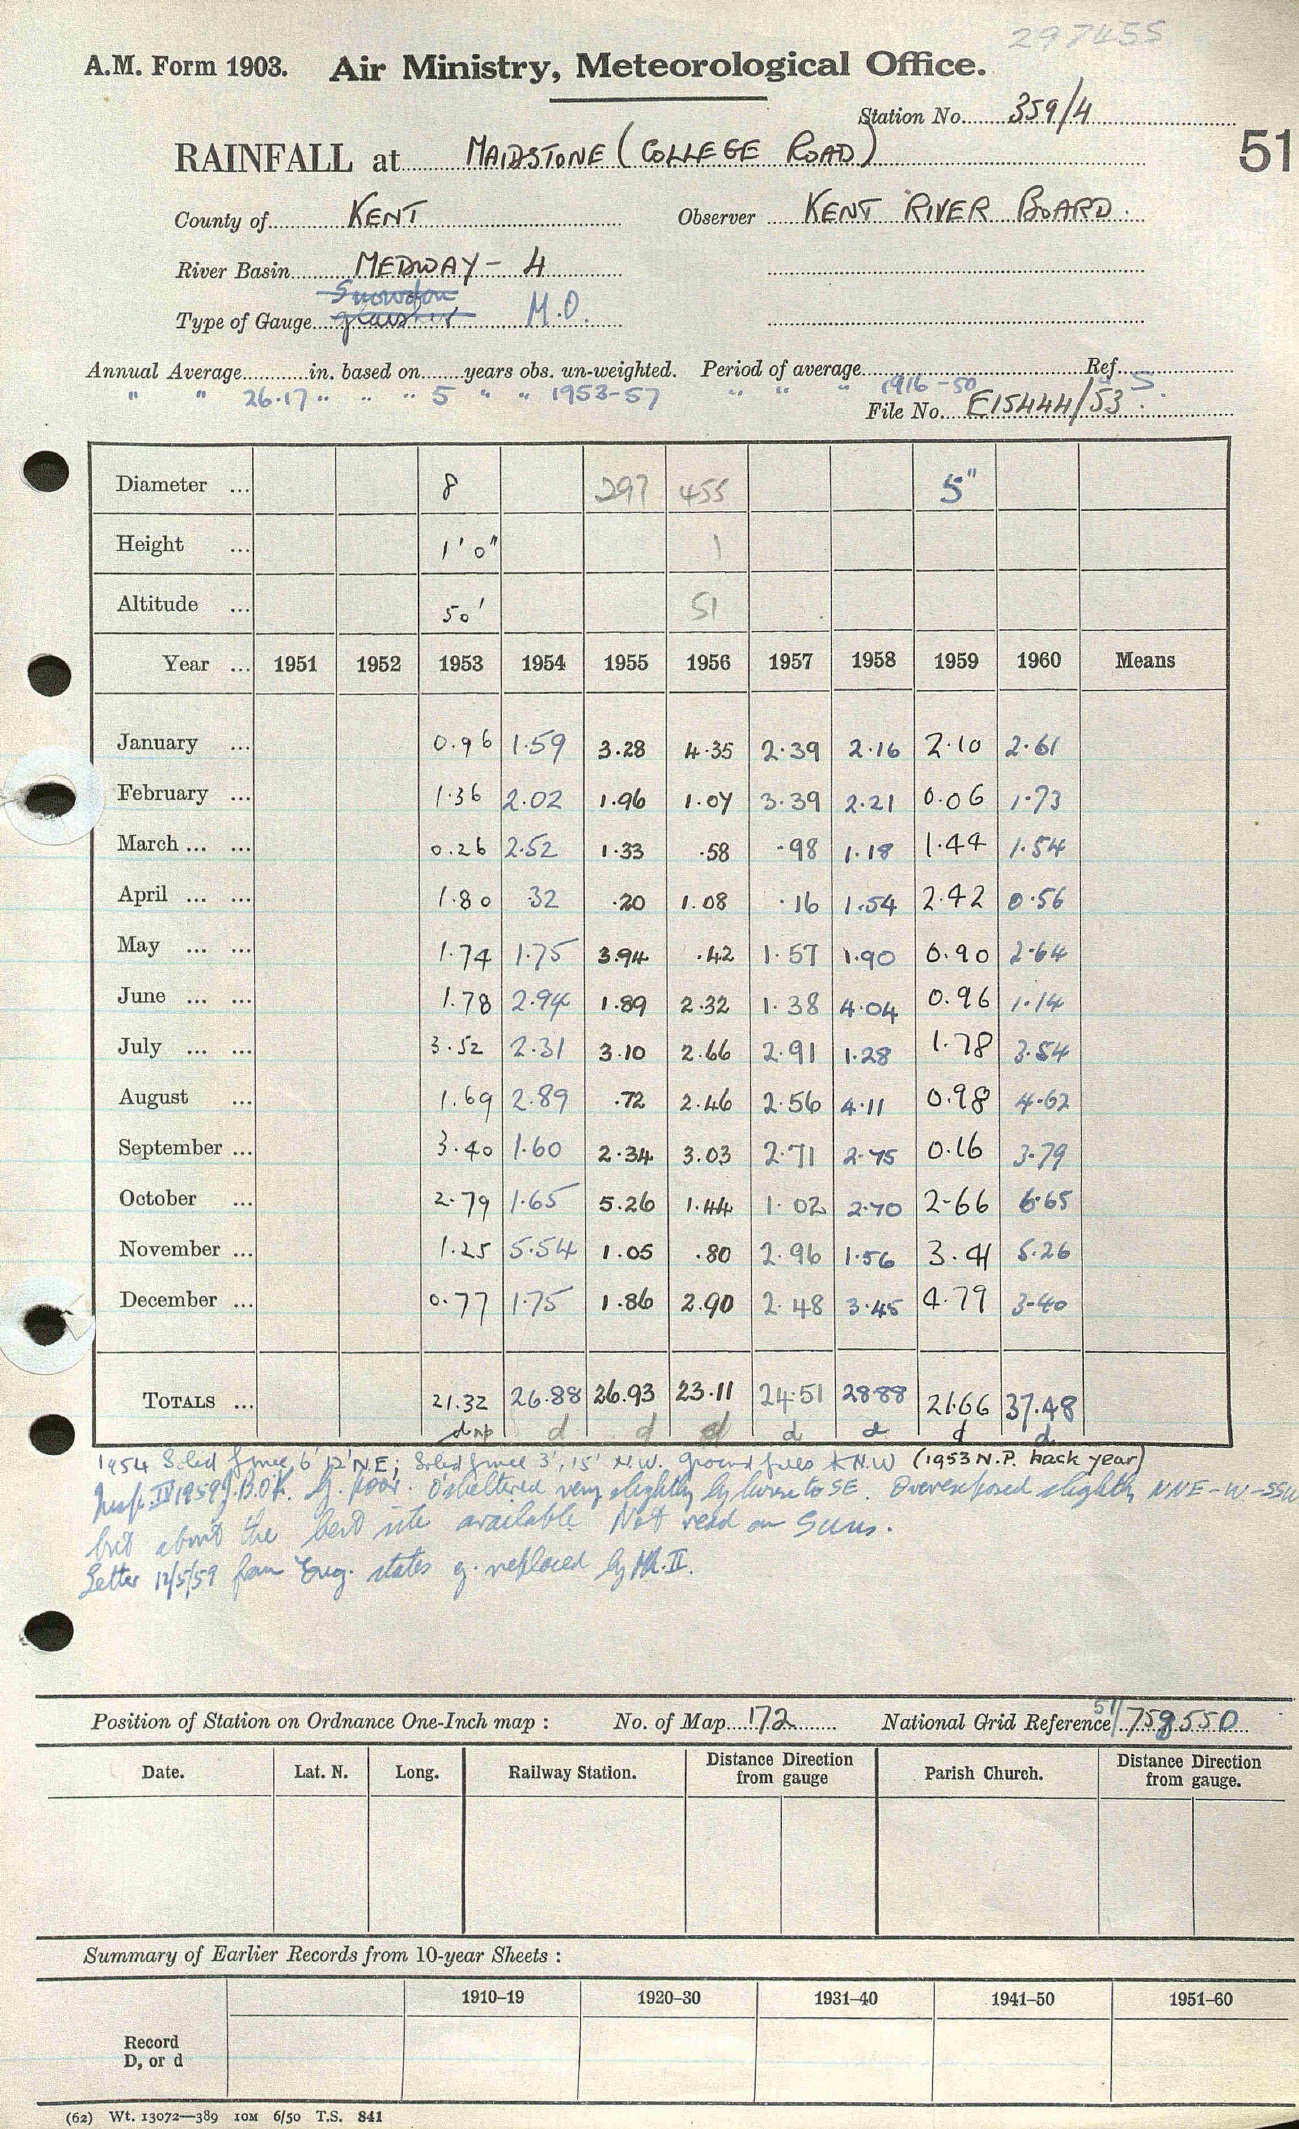 297455
A.M. Form 1903. Air Ministry, Meteorological Office.
Station No. 359/4
51
RAINFALL at MAIDSTONE (COLLEGE ROAD)
County of KENT Observer KENT RIVER BOARD.
River Basin MEDWAY - 4
Snowdon
Type of Gauge glaisher M.O.
Annual Average in. based on years obs. un-weighted. Period of average Ref.
" " 26.17 " " " 5 " " 1953-57 " " " 1916-50 " S.
File No. E15444/53
Diameter ... 8 297 455 5"
Height ... 1'0" 1
Altitude ... 50' 51
Year ... 1951 1952 1953 1954 1955 1956 1957 1958 1959 1960 Means
January ... 0.96 1.59 3.28 4.35 2.39 2.16 2.10 2.61
February ... 1.36 2.02 1.96 1.07 3.39 2.21 0.06 1.73
March ... ... 0.26 2.52 1.33 .58 .98 1.18 1.44 1.54
April ... ... 1.80 .32 .20 1.08 .16 1.54 2.42 0.56
May ... ... 1.74 1.75 3.94 .42 1.57 1.90 0.90 2.64
June ... ... 1.78 2.94 1.89 2.32 1.38 4.04 0.96 1.14
July ... ... 3.52 2.31 3.10 2.66 2.91 1.28 1.78 3.54
August ... 1.69 2.89 .72 2.46 2.56 4.11 0.98 4.62
September ... 3.40 1.60 2.34 3.03 2.71 2.75 0.16 3.79
October ... 2.79 1.65 5.26 1.44 1.02 2.70 2.66 6.65
November ... 1.25 5.54 1.05 .80 2.96 1.56 3.41 5.26
December ... 0.77 1.75 1.86 2.90 2.48 3.45 4.79 3.40
TOTALS ... 21.32 26.88 26.93 23.11 24.51 28.88 21.66 37.48
dnp d d d d d d d
1954 Solid fence 6' 12' N.E; Solid fence 3', 15' N.W. Ground falls N.W (1953 N.P. back year)
Insp. IV 1959 g. B.O.K. Lg. poor. O'sheltered very slightly by house to SE. Overexposed slightly NNE-W-SSW
but about the best site available. Not read on Suns.
Letter 12/5/59 from Eng. states g. replaced by Mk. II.
Position of Station on Ordnance One-Inch map : No. of Map 172 National Grid Reference 51/758550
Date. Lat. N. Long. Railway Station. Distance Direction from gauge Parish Church. Distance Direction from gauge.
Summary of Earlier Records from 10-year Sheets :
1910–19 1920–30 1931–40 1941–50 1951–60
Record
D, or d
(62) Wt. 13072—389 10M 6/50 T.S. 841